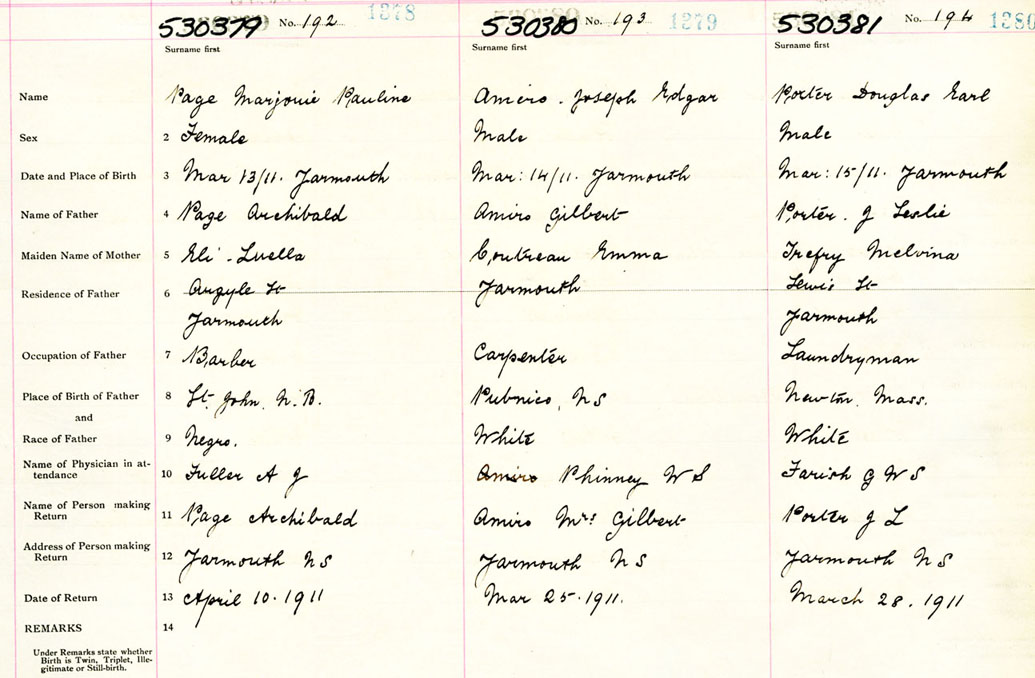 530379 No. 192 1378 530380 No. 193 1379 530381 No. 194 1380
Surname first Surname first Surname first
Name Page Marjorie Pauline Amiro. Joseph Edgar Porter Douglas Earl
Sex 2 Female Male Male
Date and Place of Birth 3 Mar 13/11. Yarmouth Mar: 14/11. Yarmouth Mar: 15/11. Yarmouth
Name of Father 4 Page Archibald Amiro Gilbert Porter. J Leslie
Maiden Name of Mother 5 Eli - Luella Coutreau Emma Trefry Melvina
Residence of Father 6 Argyle St Yarmouth Lewis St
Yarmouth Yarmouth
Occupation of Father 7 Barber Carpenter Laundryman
Place of Birth of Father 8 St. John, N.B. Pubnico, NS Newton, Mass.
and
Race of Father 9 Negro. White White
Name of Physician in at-
tendance 10 Fuller A J Amiro Phinney W S Farish G W S
Name of Person making
Return 11 Page Archibald Amiro Mrs Gilbert Porter J L
Address of Person making
Return 12 Yarmouth NS Yarmouth NS Yarmouth NS
Date of Return 13 April 10. 1911 Mar 25. 1911. March 28. 1911
REMARKS 14
Under Remarks state whether
Birth is Twin, Triplet, Ille-
gitimate or Still-birth.